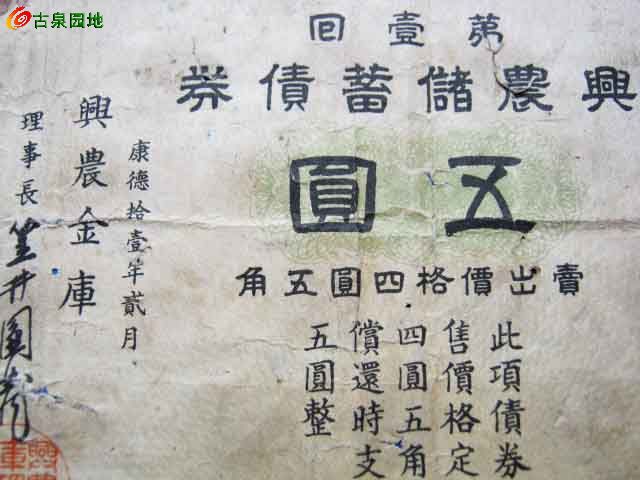 古泉园地
第壹回
興農儲蓄債券
五圓
賣出價格四圓五角
此項債券
售價格定
四圓五角
償還時支
五圓整
康德拾壹年貳月
興農金庫
理事長